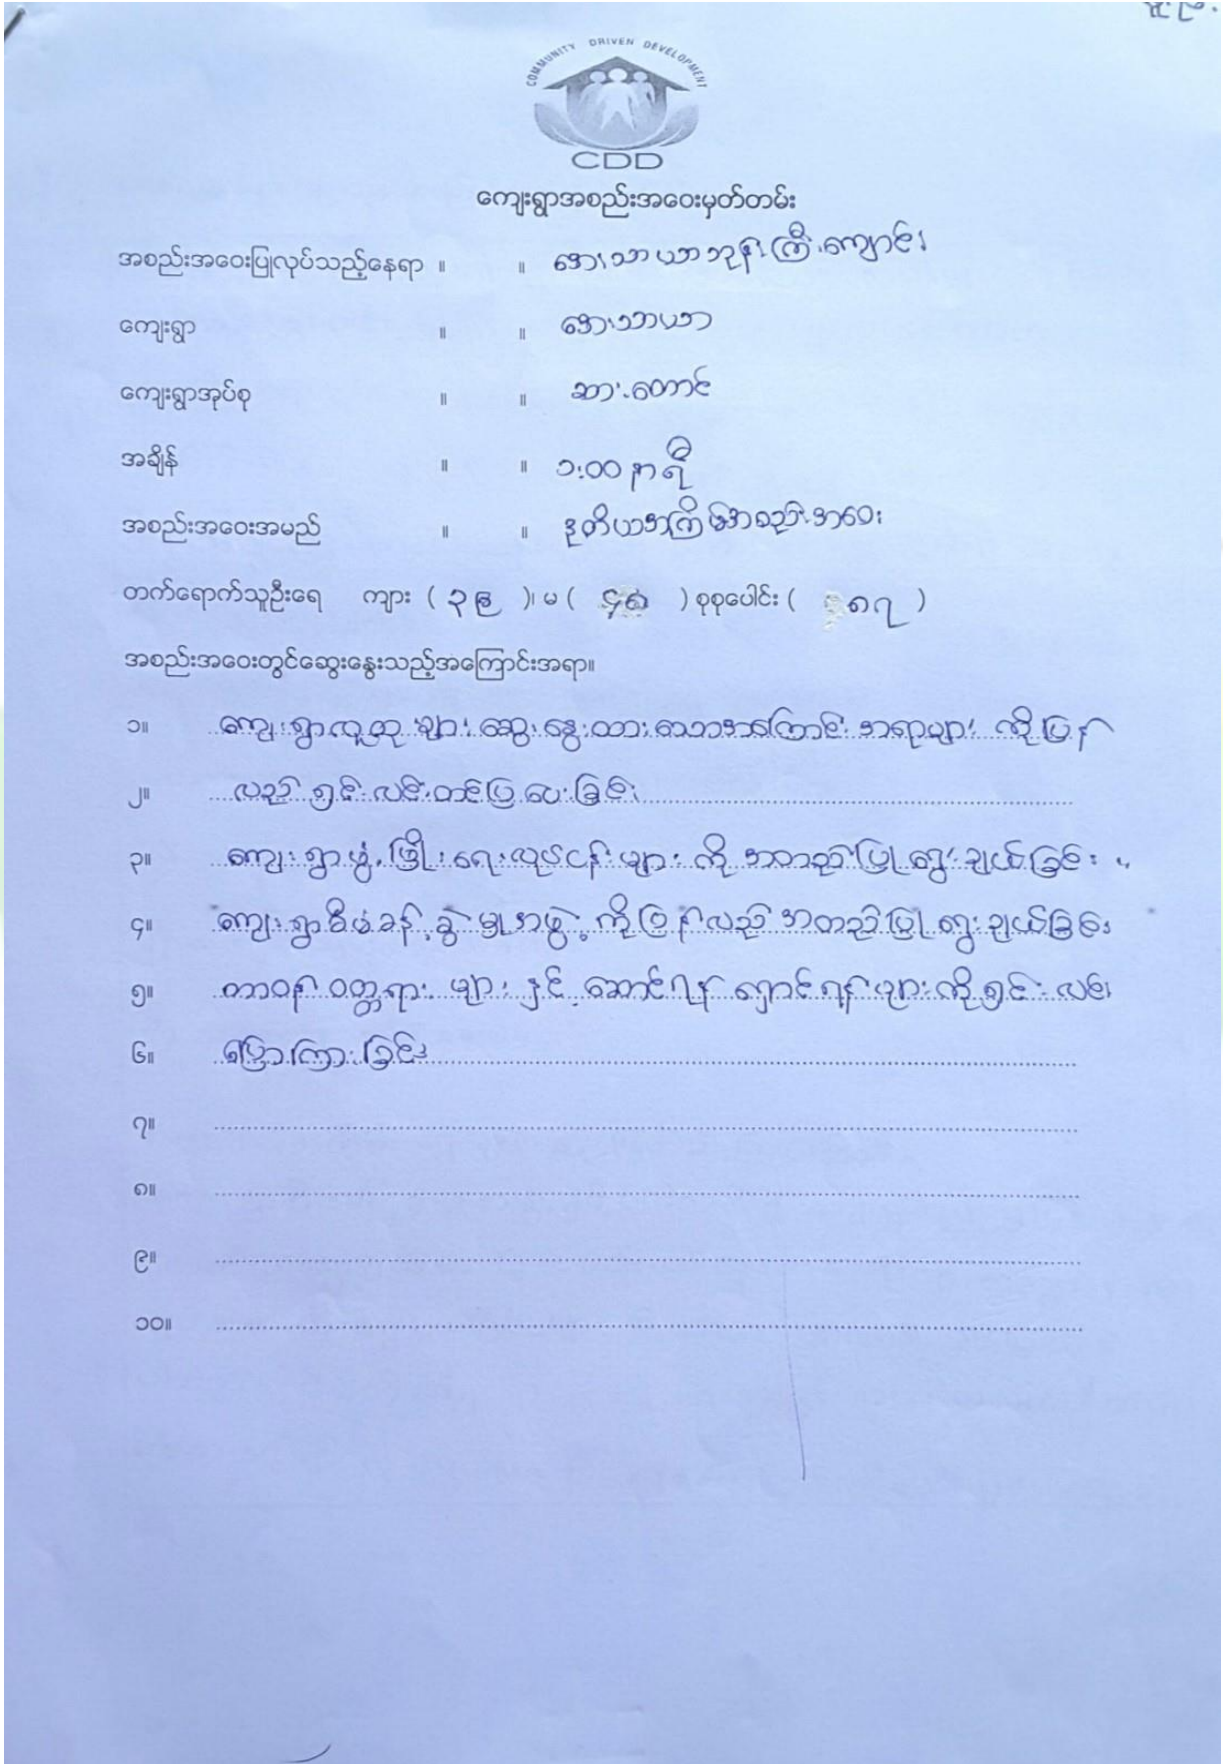 COMMUNITY DRIVEN DEVELOPMENT
CDD
ကျေးရွာအစည်းအဝေးမှတ်တမ်း
အစည်းအဝေးပြုလုပ်သည့်နေရာ ။ ။ အေးသာယာဘုန်းကြီးကျောင်း
ကျေးရွာ ။ ။ အေးသာယာ
ကျေးရွာအုပ်စု ။ ။ ဆားတောင်
အချိန် ။ ။ ၁:၀၀ နာရီ
အစည်းအဝေးအမည် ။ ။ ဒုတိယအကြိမ်အစည်းအဝေး
တက်ရောက်သူဦးရေ ကျား ( ၃၉ )၊ မ ( ၄၈ ) စုစုပေါင်း ( ၈၇ )
အစည်းအဝေးတွင်ဆွေးနွေးသည့်အကြောင်းအရာ။
၁။ ကျေးရွာလူထုများဆွေးနွေးထားသောအကြောင်းအရာများကိုပြန်
၂။ လည်ရှင်းလင်းတင်ပြပေးခြင်း
၃။ ကျေးရွာဖွံ့ဖြိုးရေးလုပ်ငန်းများကိုအတည်ပြုရွေးချယ်ခြင်း။
၄။ ကျေးရွာစီမံခန့်ခွဲမှုအဖွဲ့ကိုပြန်လည်အတည်ပြုရွေးချယ်ခြင်း
၅။ တာဝန်ဝတ္တရားများနှင့်ဆောင်ရန်ရှောင်ရန်များကိုရှင်းလင်း
၆။ ပြောကြားခြင်း
၇။
၈။
၉။
၁၀။